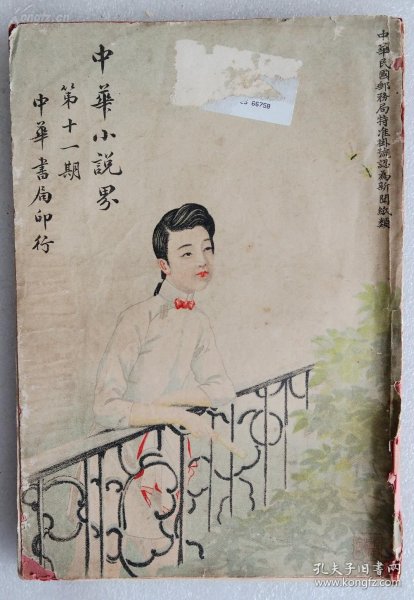 中華民國郵務局特准掛號認為新聞紙類
中華小說界
第十一期
中華書局印行
66758
孔夫子旧书网
www.kongfz.com